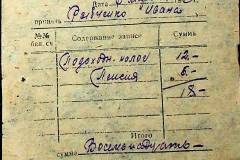 Дата
Рыбченко Ивана
№№ Содержание записи Сумма
бан. сч.
Подоходн. налог 12-
Пенсия 6-
18-
Итого
сумма Восемнадцать-